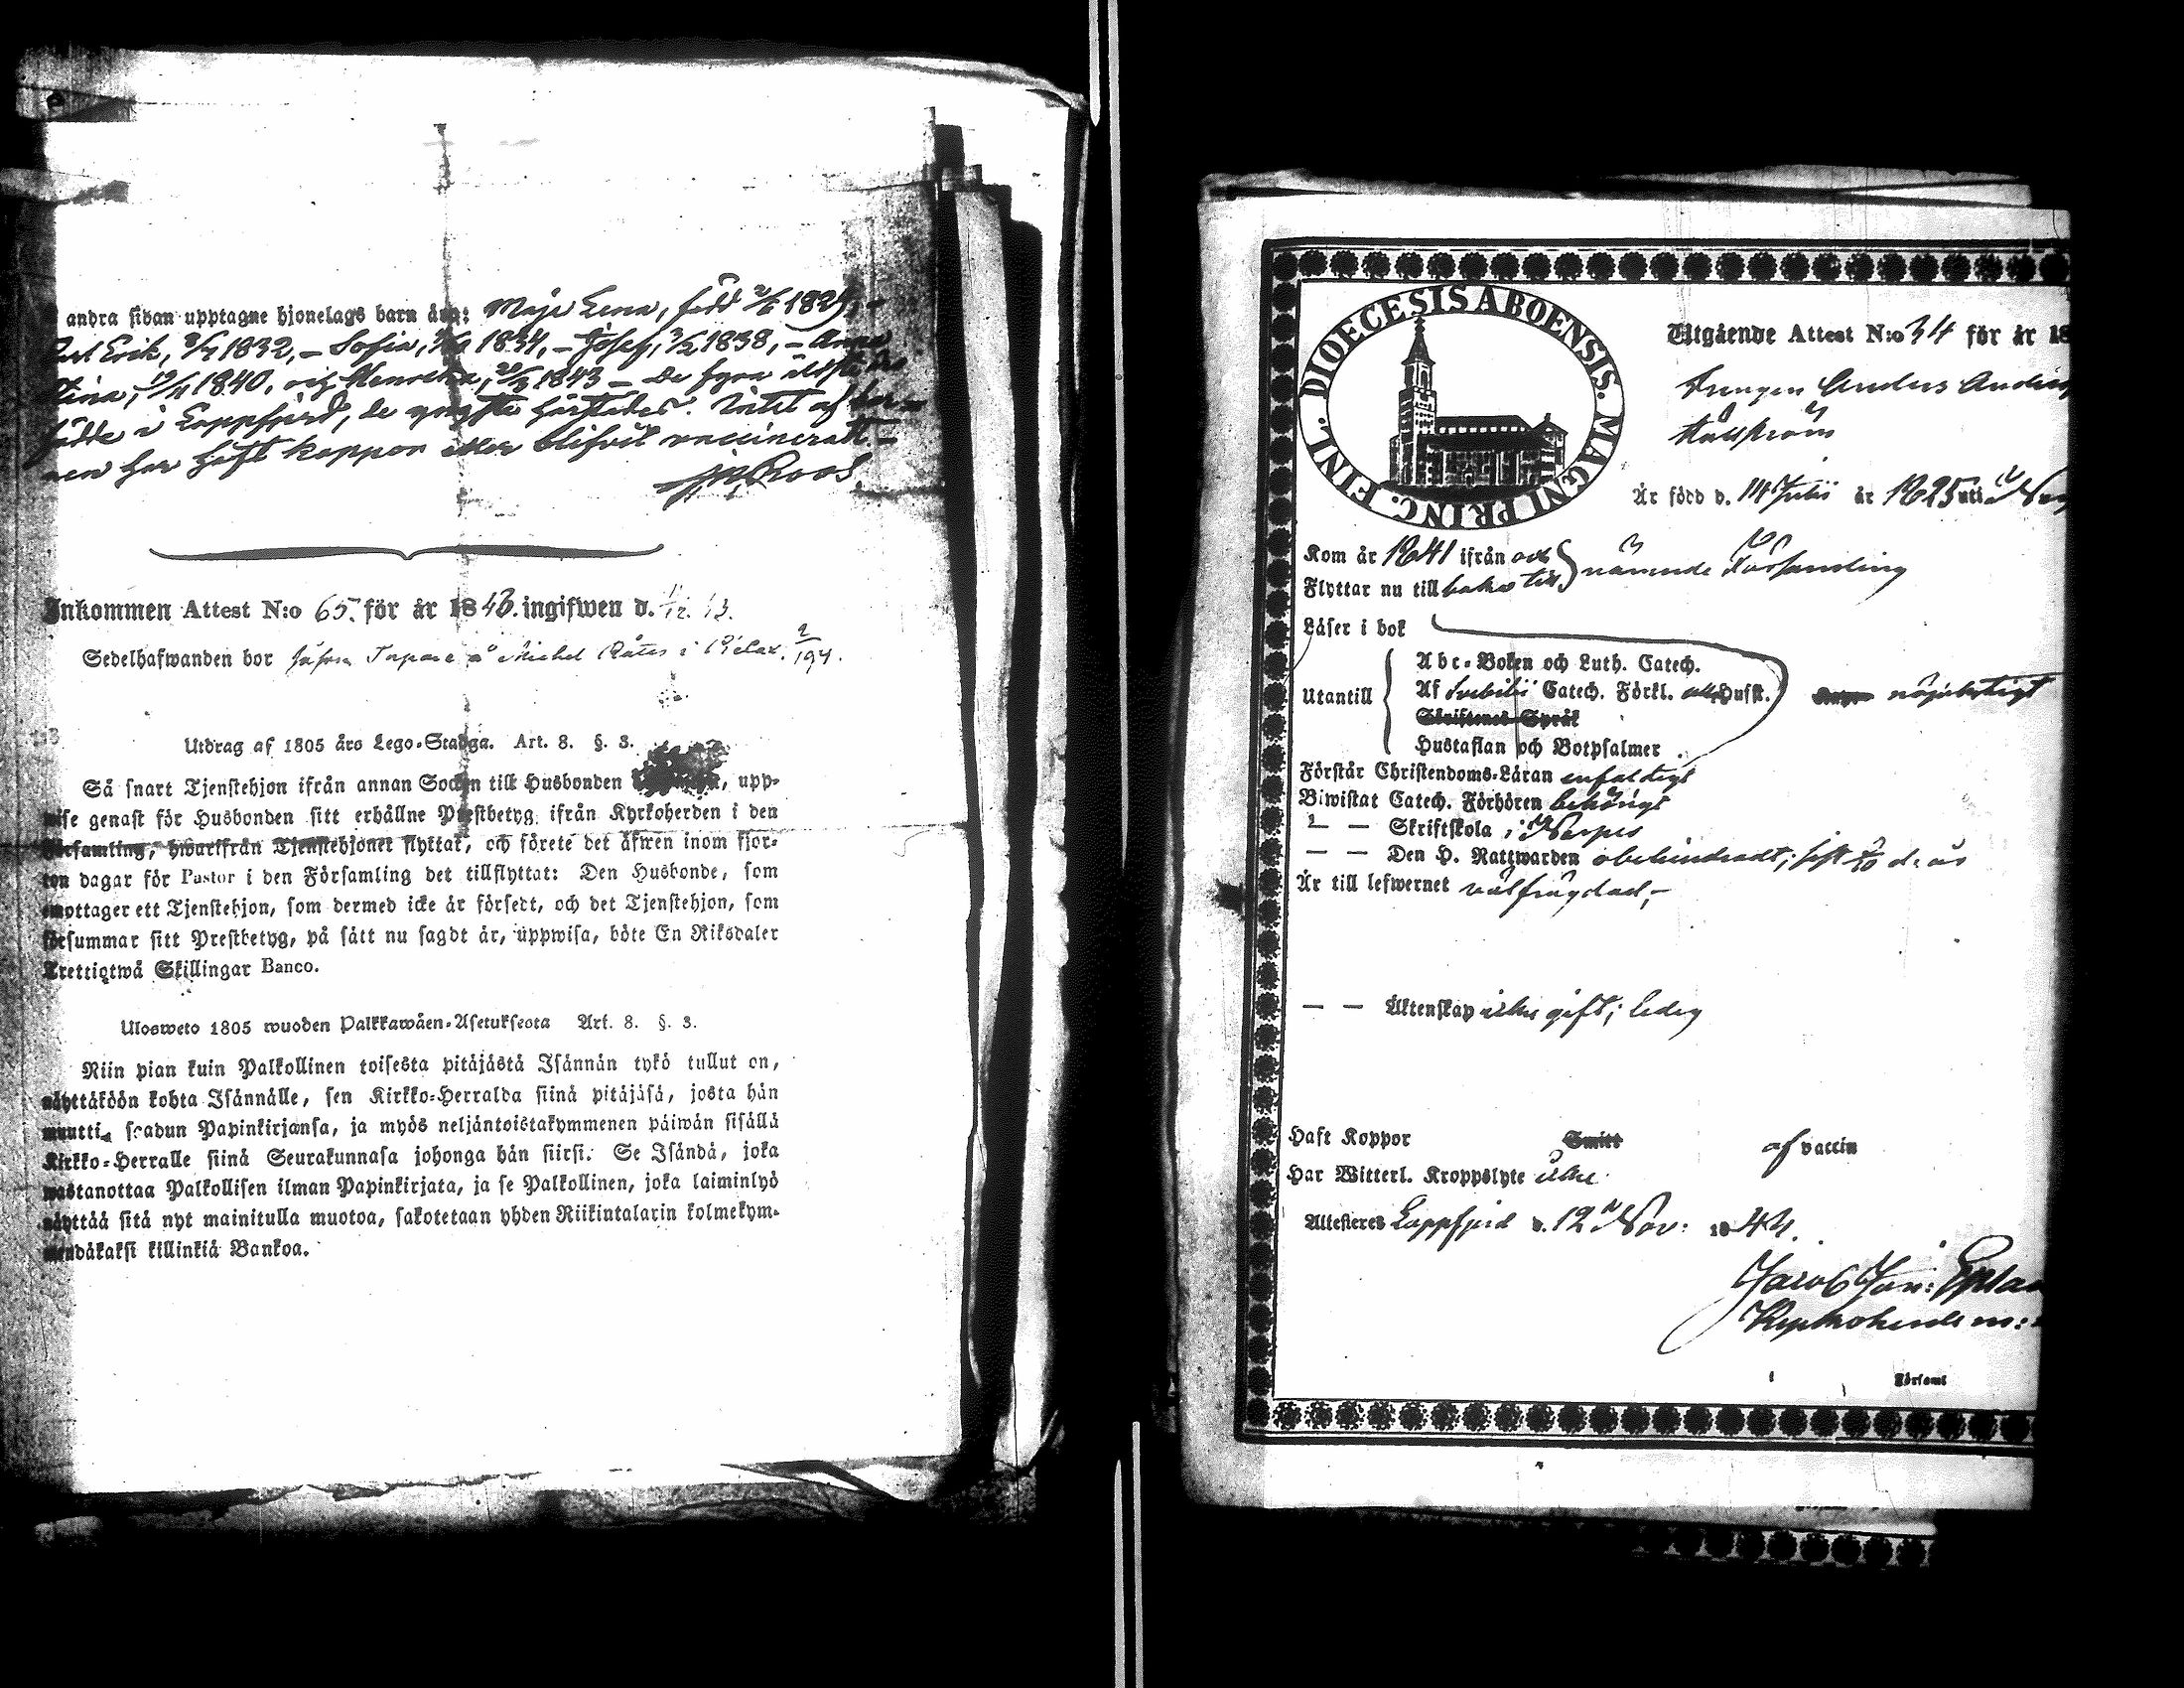 andra sidan upptagne hjonelags barn äro: Maja Lena, född 2/6 1829, –
Carl Erik, 1832, – Sofia, 1834, – Josef, 1838, – Anna
Stina, 1840, och Henrika, 1843 – De fyra äldste äro
födde i Lappfjerd, de yngste härstädes. Intet af bar-
nen har haft koppor eller blifvit vaccineradt –
Roos.
Inkommen Attest N:o 65. för år 1843. ingifwen d.
Sedelhafwanden bor Michel
Utdrag af 1805 års Lego-Stadga. Art. 8. §. 3.
Så snart Tjenstehjon ifrån annan Socken till Husbonden, upp-
wise genast för Husbonden sitt erhållne Prestbetyg ifrån Kyrkoherden i den
Församling, hwarifrån Tjenstehjonet flyttat, och förete det äfwen inom fjor-
ton dagar för Pastor i den Församling det tillflyttat: Den Husbonde, som
emottager ett Tjenstehjon, som dermed icke är försedt, och det Tjenstehjon, som
försummar sitt Prestbetyg, på sätt nu sagdt är, uppwisa, böte En Riksdaler
Trettiotwå Skillingar Banco.
Ulosweto 1805 wuoden Palkkawäen-Asetuksesta Art. 8. §. 3.
Niin pian kuin Palkollinen toisesta pitäjästä Isännän tykö tullut on,
näyttäköön kohta Isännälle, sen Kirkko-Herralda siinä pitäjäsä, josta hän
muutti, saadun Papinkirjansa, ja myös neljäntoistakymmenen päiwän sisällä
Kirkko-Herralle siinä Seurakunnasa johonga hän siirsi. Se Isändä, joka
wastanottaa Palkollisen ilman Papinkirjata, ja se Palkollinen, joka laiminlyö
näyttää sitä nyt mainitulla muotoa, sakotetaan yhden Riikintalarin kolmekym-
mendäkaksi killinkiä Bankoa.
DIOECESIS ABOENSIS. MAGNI PRINC. FINL.
Utgående Attest N:o 34 för år 18
Drengen Anders Anders
Är född d. 14 Julii år 1825 uti
Kom år 1841 ifrån och
Flyttar nu tillbaka till } nämnde Församling
Läser i bok
Utantill
Abc-Boken och Luth. Catech.
Af Svebilii Catech. Förkl. Husst. nöjaktigt
Skriftenes Språk
Hustaflan och Botpsalmer
Förstår Christendoms-Läran enfaldigt
Biwistat Catech. Förhören behörigt
— — Skriftskola i Nerpes
— — Den H. Nattwarden obehindradt; sist d. år
Är till lefwernet välfrägdad, –
— — Äktenskap icke gift; ledig
Haft Koppor Smitt af vaccin
Har Witterl. Kroppslyte icke
Attesteres Lappfjerd d. 12 Nov: 1844.
Jacob Joh:
Kyrkoherde
Församl